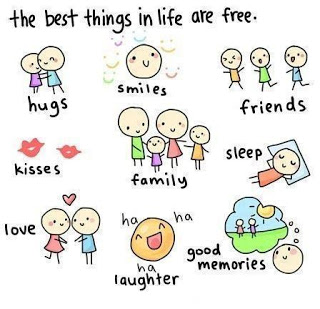 the best things in life are free.
hugs
smiles
friends
kisses
family
sleep
love
ha
ha
ha
laughter
good
memories